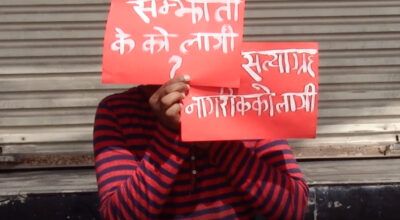 सम्झौता
के को लागी
?
सत्याग्रह
नागरीकको लागी